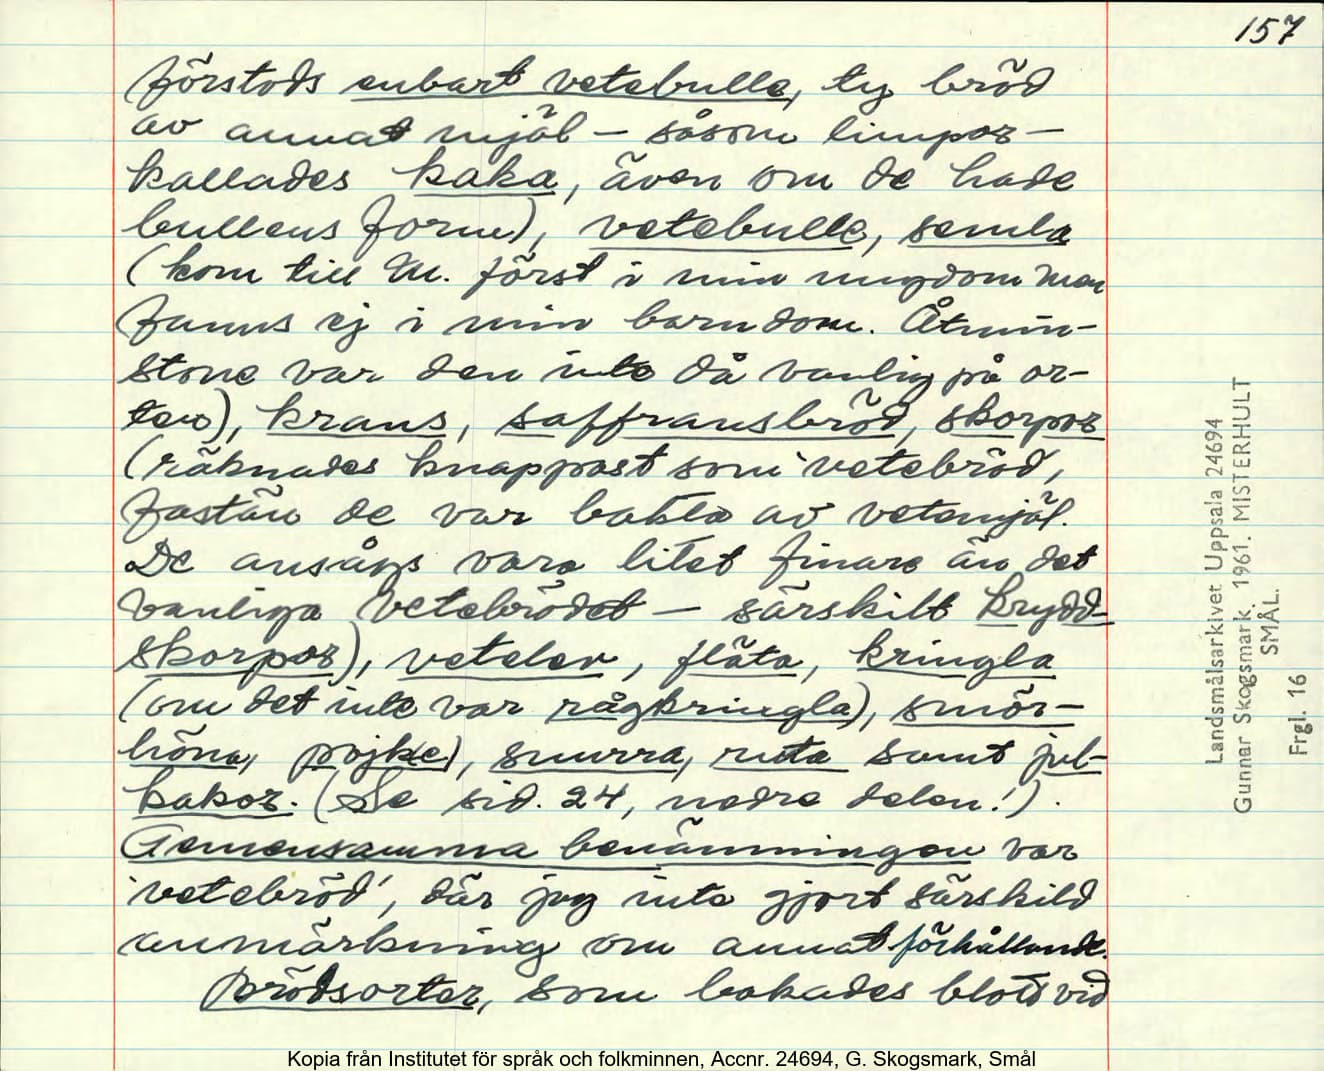 157
förstods enbart vetebulle, ty bröd
av annat mjöl – såsom limpor –
kallades kaka, även om de hade
bullens form), vetebulle, semla
(kom till M. först i min ungdom men
fanns ej i min barndom. Åtmin-
stone var den inte då vanlig på or-
ten), krans, saffransbröd, skorpor
(räknades knappast som 'vetebröd',
fastän de var bakta av vetemjöl.
De ansågs vara litet finare än det
vanliga vetebrödet – särskilt krydd-
skorpor), vetelev, fläta, kringla
(om det inte var rågkringla), smör-
höna, pojke), snurra, ruta samt jul-
kakor. (Se sid. 24, nedre delen!).
Gemensamma benämningen var
'vetebröd', där jag inte gjort särskild
anmärkning om annat förhållande.
Brödsorter, som bakades blott vid
Landsmålsarkivet Uppsala 24694
Gunnar Skogsmark, 1961. MISTERHULT
SMÅL.
Frgl. 16
Kopia från Institutet för språk och folkminnen, Accnr. 24694, G. Skogsmark, Smål